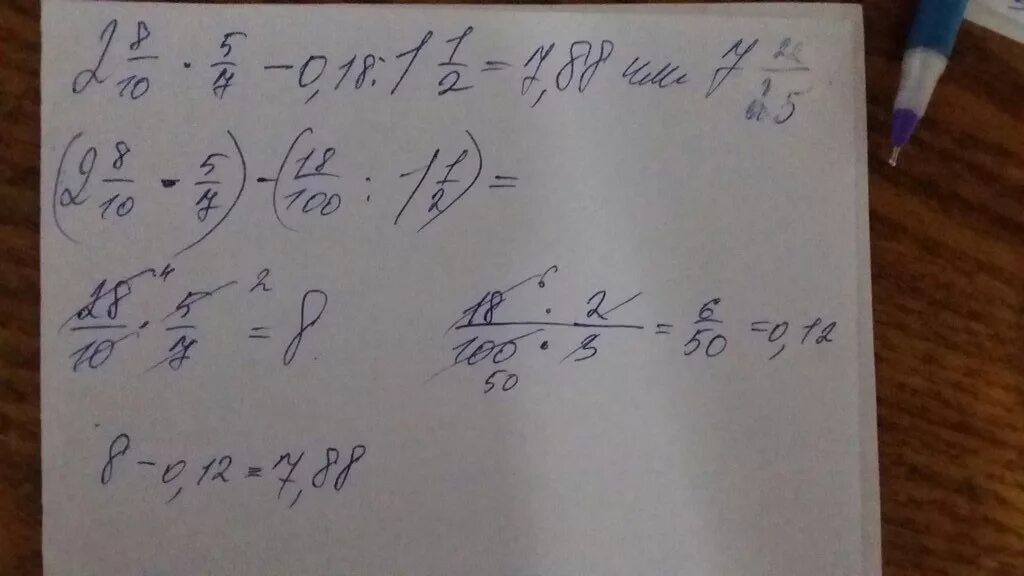 2 8/10 · 5/7 − 0,18 : 1 1/2 = 7,88 или 7 22/25
(2 8/10 · 5/7) − (18/100 : 1 1/2) =
28/10 · 5/7 = 8
4 2
18 · 2 / 100 · 3 = 6/50 = 0,12
6
50
8 − 0,12 = 7,88